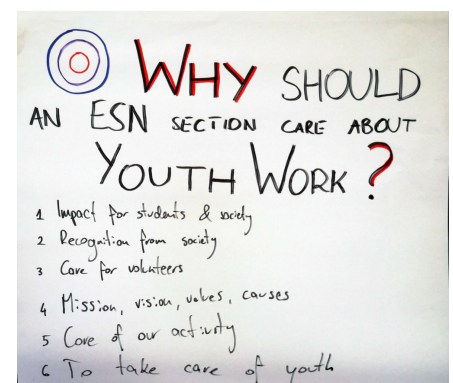 WHY SHOULD
AN ESN SECTION CARE ABOUT
YOUTH WORK?
1 Impact for students & society
2 Recognition from society
3 Care for volunteers
4 Mission, vision, values, causes
5 Core of our activity
6 To take care of youth